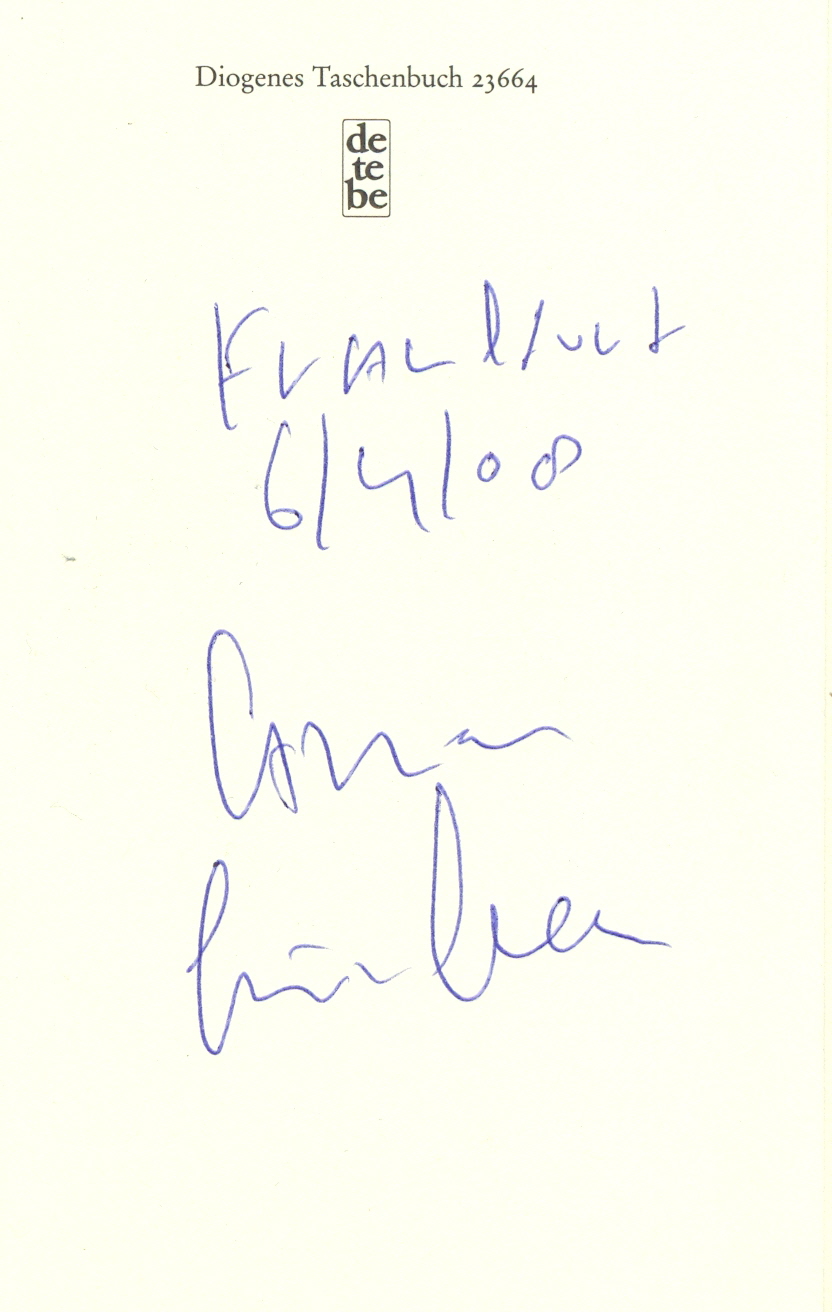 Diogenes Taschenbuch 23664
de
te
be
Frankfurt
6/4/08